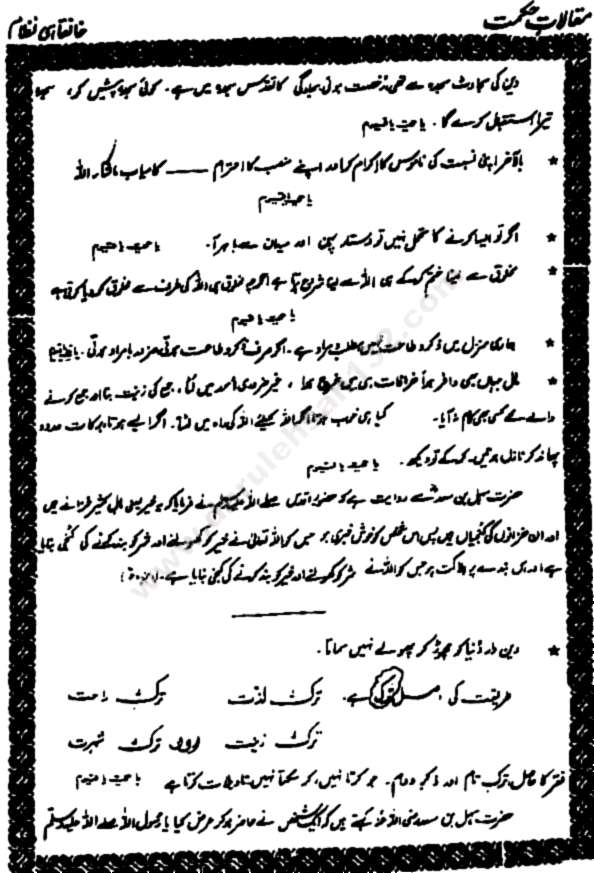 مقالات حکمت
خانقاہی نظام
دین کی سجاوٹ سجدہ سے تھی رخصت ہوئی کا تقدس سجدہ میں ہے۔ کوئی سجدہ پیش کر، سجدہ
تیرا استقبال کرے گا۔ یا حی یا قیوم
★ بالآخر اپنی نسبت کی ناموس کا اکرام کر اور اپنے منصب کا احترام —— کامیاب ماشاء اللہ
یا حی یا قیوم
★ اگر تو ایسا کرنے کا متحمل نہیں تو دستار پہن اور میدان سے باہر آ۔ یا حی یا قیوم
★ مخلوق سے لینا ختم کر کے ہی اللہ سے لینا شروع ہوتا ہے اگرچہ مخلوق ہی اللہ کی طرف سے مخلوق کو دیا کرتی ہے
یا حی یا قیوم
★ ہماری منزل میں ذکر و طاعت نہیں مطلب مراد ہے۔ اگر صرف ذکر و طاعت ہوتی بامراد ہوتی۔ یا حی یا قیوم
★ مال جہاں بھی وافر ہوا خرافات ہی میں خرچ ہوا، غیر ضروری امور میں لگا، جمع کی زینت بنا اور جمع کرنے
والے کے کسی بھی کام نہ آیا۔ کیا ہی خوب ہوتا اگر اللہ کیلئے اللہ کی راہ میں لٹتا۔ اگر ایسے ہوتا، برکات حدود
پھاند کر نازل ہوتیں۔ کر کے تو دیکھ۔ یا حی یا قیوم
حضرت سہل بن سعدؓ سے روایت ہے کہ حضور اقدس صلے اللہ علیہ وسلم نے فرمایا کہ یہ خیر یعنی مال کثیر خزانے ہیں
اور ان خزانوں کی کنجیاں ہیں پس اس شخص کو خوش خبری ہو جس کو اللہ تعالیٰ نے خیر کو کھولنے اور شر کو بند کرنے کی کنجی بنایا
ہے اور اس بندے پر ہلاکت ہو جس کو اللہ نے شر کو کھولنے اور خیر کو بند کرنے کی کنجی بنایا ہے۔
★ دین دار دنیا کو چھوڑ کر پھولے نہیں سماتا۔
طریقت کی اصل ترک ہے۔ ترک لذت ترک راحت
ترک زینت اور ترک شہرت
فقر کا حاصل ترک تام اور ذکر دوام۔ جو کرتا نہیں، کر سکتا نہیں، تاویلات کرتا ہے یا حی یا قیوم
حضرت سہل بن سعد رضی اللہ عنہ کہتے ہیں کہ ایک شخص نے حاضر ہو کر عرض کیا یا رسول اللہ صلے اللہ علیہ وسلم